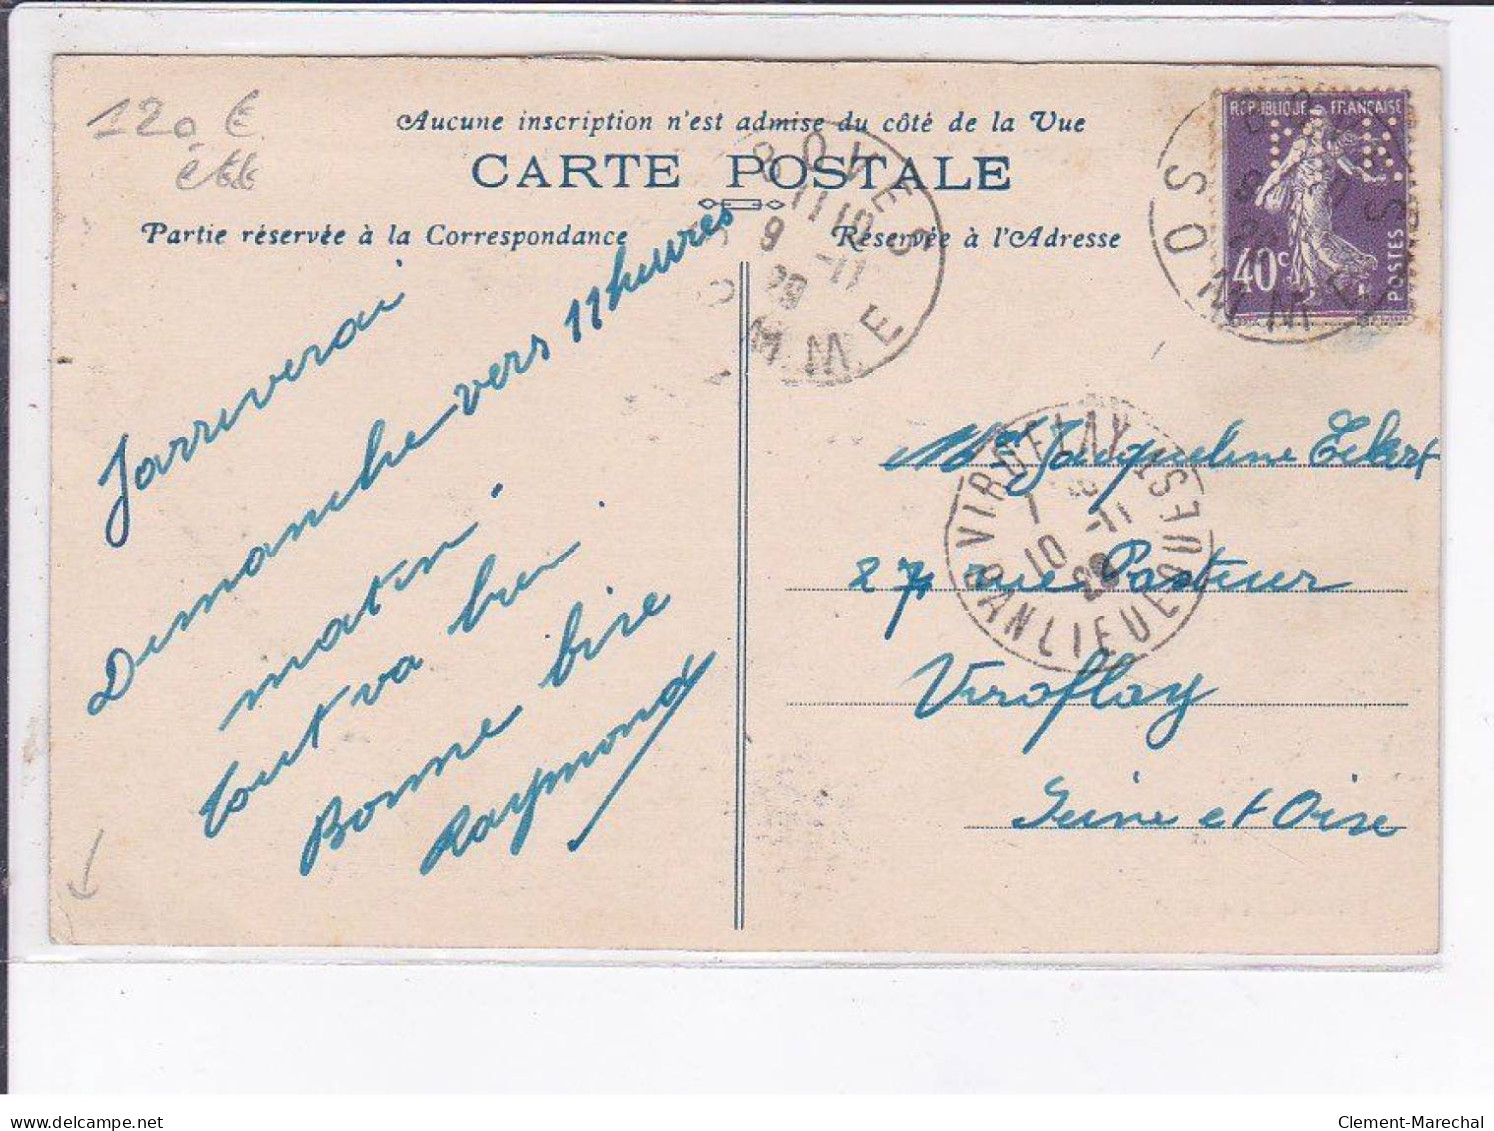 120 €
Aucune inscription n'est admise du côté de la Vue
CARTE POSTALE
Partie réservée à la Correspondance
Réservée à l'Adresse
RÉPUBLIQUE FRANÇAISE
40c
POSTES
SOMME
ROYE
SOMME
11 10
9 -11
29
J'arriverai
Dimanche vers 11 heures
matin
tout va bien
Bonne bise
Raymond
VIROFLAY
10 -11
BANLIEUE OUEST
Jacqueline
27 rue Pasteur
Viroflay
Seine et Oise
Clement-Marechal